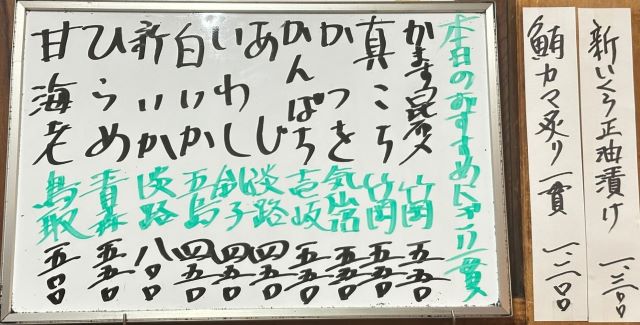 本日のおすすめにぎり一貫
かます昆布〆 竹岡 五五〇
真こち 竹岡 五五〇
かつを 気仙沼 五五〇
かんぱち 壱岐 五五〇
あじ 淡路 四五〇
いわし 銚子 四五〇
白いか 五島 四五〇
新いか 淡路 八〇〇
ひらめ 青森 五五〇
甘海老 鳥取 五〇〇
新いくら正油漬け 一、三〇〇
鮪カマ炙り一貫 一、二〇〇